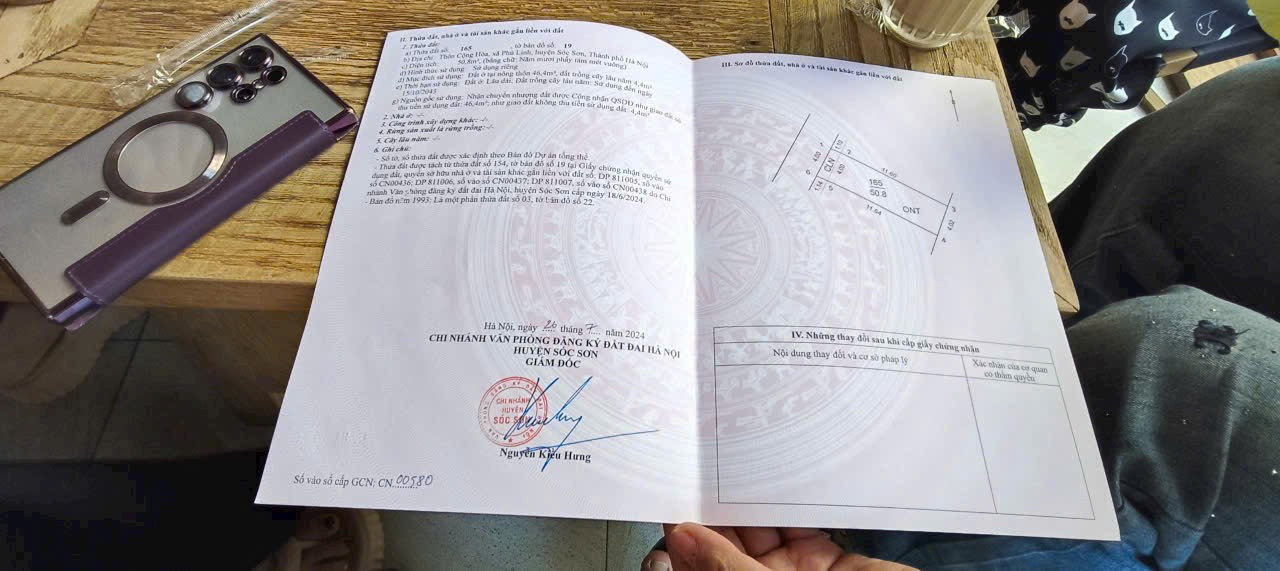 II. Thửa đất, nhà ở và tài sản khác gắn liền với đất
1. Thửa đất:
a) Thửa đất số: 165 , tờ bản đồ số: 19
b) Địa chỉ: Thôn Cộng Hòa, xã Phù Linh, huyện Sóc Sơn, Thành phố Hà Nội
c) Diện tích: 50,8m², (bằng chữ: Năm mươi phẩy tám mét vuông)
d) Hình thức sử dụng: Sử dụng riêng
đ) Mục đích sử dụng: Đất ở tại nông thôn 46,4m²; đất trồng cây lâu năm 4,4m²
e) Thời hạn sử dụng: Đất ở: Lâu dài. Đất trồng cây lâu năm: Sử dụng đến ngày
15/10/2043
g) Nguồn gốc sử dụng: Nhận chuyển nhượng đất được Công nhận QSDĐ như giao đất có
thu tiền sử dụng đất: 46,4m²; như giao đất không thu tiền sử dụng đất: 4,4m².
2. Nhà ở: -/-
3. Công trình xây dựng khác: -/-
4. Rừng sản xuất là rừng trồng: -/-
5. Cây lâu năm: -/-
6. Ghi chú:
- Số tờ, số thửa đất được xác định theo Bản đồ Dự án tổng thể
- Thửa đất được tách từ thửa đất số 154, tờ bản đồ số 19 tại Giấy chứng nhận quyền sử
dụng đất, quyền sở hữu nhà ở và tài sản khác gắn liền với đất số: DP 811005, số vào
số CN00436; DP 811006, số vào số CN00437; DP 811007, số vào số CN00438 do Chi
nhánh Văn phòng đăng ký đất đai Hà Nội, huyện Sóc Sơn cấp ngày 18/6/2024.
- Bản đồ năm 1993: Là một phần thửa đất số 03, tờ bản đồ số 22.
Hà Nội, ngày 26 tháng 7 năm 2024
CHI NHÁNH VĂN PHÒNG ĐĂNG KÝ ĐẤT ĐAI HÀ NỘI
HUYỆN SÓC SƠN
GIÁM ĐỐC
CHI NHÁNH
HUYỆN
SÓC SƠN
Nguyễn Kiều Hưng
Số vào sổ cấp GCN: CN 00580
III. Sơ đồ thửa đất, nhà ở và tài sản khác gắn liền với đất
1
1.10
4.03
CLN
4.03
11.60
6
1.14
5
165
50.8
ONT
11.54
3
4.02
4
IV. Những thay đổi sau khi cấp giấy chứng nhận
Nội dung thay đổi và cơ sở pháp lý
Xác nhận của cơ quan
có thẩm quyền